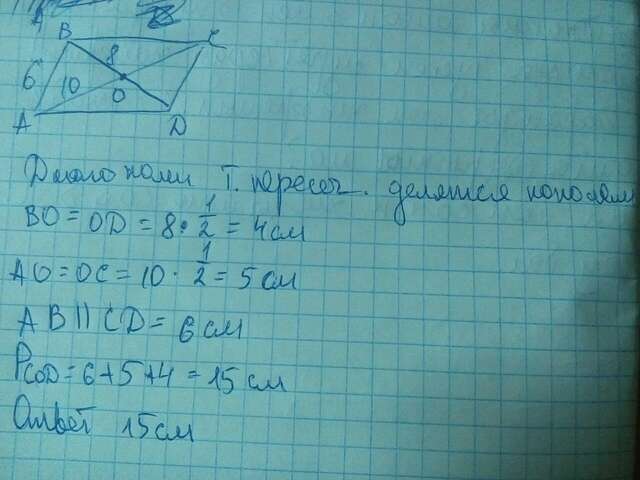 B
C
8
6
10
O
A
D
Диагонали т. пересеч. делятся пополам
BO = OD = 8 · 1/2 = 4 см
AO = OC = 10 · 1/2 = 5 см
AB || CD = 6 см
PCOD = 6 + 5 + 4 = 15 см
Ответ 15 см